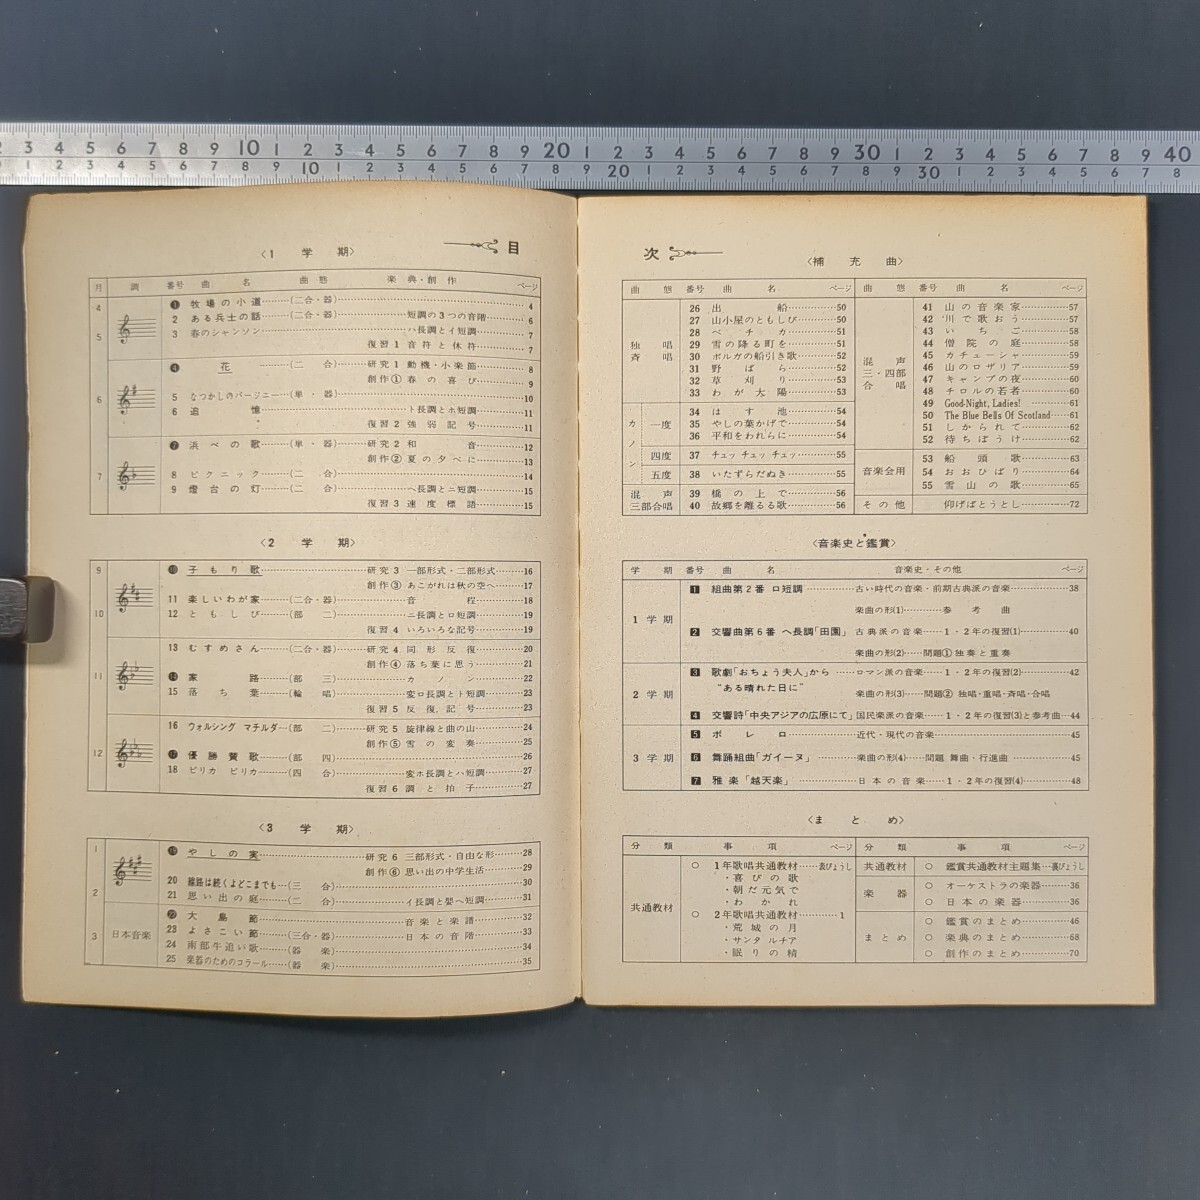 2 3 4 5 6 7 8 9 10 1 2 3 4 5 6 7 8 9 20 1 2 3 4 5 6 7 8 9 30 1 2 3 4 5 6 7 8 9 40
1 2 3 4 5 6 7 8 9 10 1 2 3 4 5 6 7 8 9 20 1 2 3 4 5 6 7 8 9 30 1 2 3 4 5 6 7 8
目
〈1 学 期〉
月 調 番号 曲 名 曲 態 楽 典・創 作 ページ
4
❶ 牧場の小道……(二合・器)……4
2 ある兵士の話……(二合・器)……短調の3つの音階……6
5
3 春のシャンソン……ハ長調とイ短調……7
復習1 音符と休符……7
❹ 花……(二 合)……研究1 動機・小楽節……8
創作① 春の喜び……9
6
5 なつかしのバージニー……(単・器)……10
6 追 憶……ト長調とホ短調……11
復習2 強弱記号……11
❼ 浜べの歌……(単・器)……研究2 和 音……12
創作② 夏の夕べに……13
7
8 ピクニック……(二 合)……14
9 燈台の灯……(二 合)……ヘ長調とニ短調……15
復習3 速度標語……15
〈2 学 期〉
9
❿ 子もり歌……研究3 一部形式・二部形式……16
創作③ あこがれは秋の空へ……17
10
11 楽しいわが家……(二合・器)……音 程……18
12 ともしび……(部 二)……ニ長調とロ短調……19
復習4 いろいろな記号……19
13 むすめさん……(二合・器)……研究4 同形反復……20
創作④ 落ち葉に思う……21
11
⓮ 家 路……(部 三)……カ ノ ン……22
15 落ち葉……(輪 唱)……変ロ長調とト短調……23
復習5 反復記号……23
16 ウォルシング マチルダ……(部 二)……研究5 旋律線と曲の山……24
創作⑤ 雪の変奏……25
12
⓱ 優勝賛歌……(部 四)……26
18 ビリカ ピリカ……(四 合)……変ホ長調とハ短調……27
復習6 調と拍子……27
〈3 学 期〉
1
⓳ やしの実……研究6 三部形式・自由な形……28
創作⑥ 思い出の中学生活……29
2
20 線路は続くよどこまでも……(三 合)……30
21 思い出の庭……(二 合)……イ長調と嬰ヘ短調……31
3 日本音楽
㉒ 大島節……音楽と楽譜……32
23 よさこい節……(三合・器)……日本の音階……33
24 南部牛追い歌……(器 楽)……34
25 楽器のためのコラール……(器 楽)……35
次
〈補 充 曲〉
曲 態 番号 曲 名 ページ
独 唱
斉 唱
26 出 船……50
27 山小屋のともしび……50
28 ペチカ……51
29 雪の降る町を……51
30 ボルガの船引き歌……52
31 野ばら……52
32 草刈り……53
33 わが太陽……53
カノン
一度
34 はす池……54
35 やしの葉かげで……54
36 平和をわれらに……54
四度 37 チュッ チュッ チュッ……55
五度 38 いたずらだぬき……55
混 声
三部合唱
39 橋の上で……56
40 故郷を離るる歌……56
曲 態 番号 曲 名 ページ
混 声
三・四部
合 唱
41 山の音楽家……57
42 川で歌おう……57
43 いちご……58
44 僧院の庭……58
45 カチューシャ……59
46 山のロザリア……59
47 キャンプの夜……60
48 チロルの若者……60
49 Good-Night, Ladies!……61
50 The Blue Bells Of Scotland……61
51 しかられて……62
52 待ちぼうけ……62
音楽会用
53 船頭歌……63
54 おおひばり……64
55 雪山の歌……65
その他 仰げばとうとし……72
〈音楽史と鑑賞〉
学 期 番号 曲 名 音楽史・その他 ページ
1 学期
1 組曲第2番 ロ短調……古い時代の音楽・前期古典派の音楽……38
楽曲の形(1)……参 考 曲
2 交響曲第6番 ヘ長調「田園」 古典派の音楽……1・2年の復習(1)……40
楽曲の形(2)……問題① 独奏と重奏
2 学期
3 歌劇「おちょう夫人」から……ロマン派の音楽……1・2年の復習(2)……42
“ある晴れた日に” 楽曲の形(3)……問題② 独唱・重唱・斉唱・合唱
4 交響詩「中央アジアの広原にて」 国民楽派の音楽……1・2年の復習(3)と参考曲…44
3 学期
5 ボレロ……近代・現代の音楽……45
6 舞踊組曲「ガイーヌ」……楽曲の形(4)……問題 舞曲・行進曲……45
7 雅楽「越天楽」……日本の音楽……1・2年の復習(4)……48
〈ま と め〉
分 類 事 項 ページ
共通教材
○ 1年歌唱共通教材……裏びょうし
・喜びの歌
・朝だ元気で
・わかれ
○ 2年歌唱共通教材……1
・荒城の月
・サンタ ルチア
・眠りの精
分 類 事 項 ページ
共通教材 ○ 鑑賞共通教材主題集…裏びょうし
楽 器
○ オーケストラの楽器……36
○ 日本の楽器……36
まとめ
○ 鑑賞のまとめ……46
○ 楽典のまとめ……68
○ 創作のまとめ……70